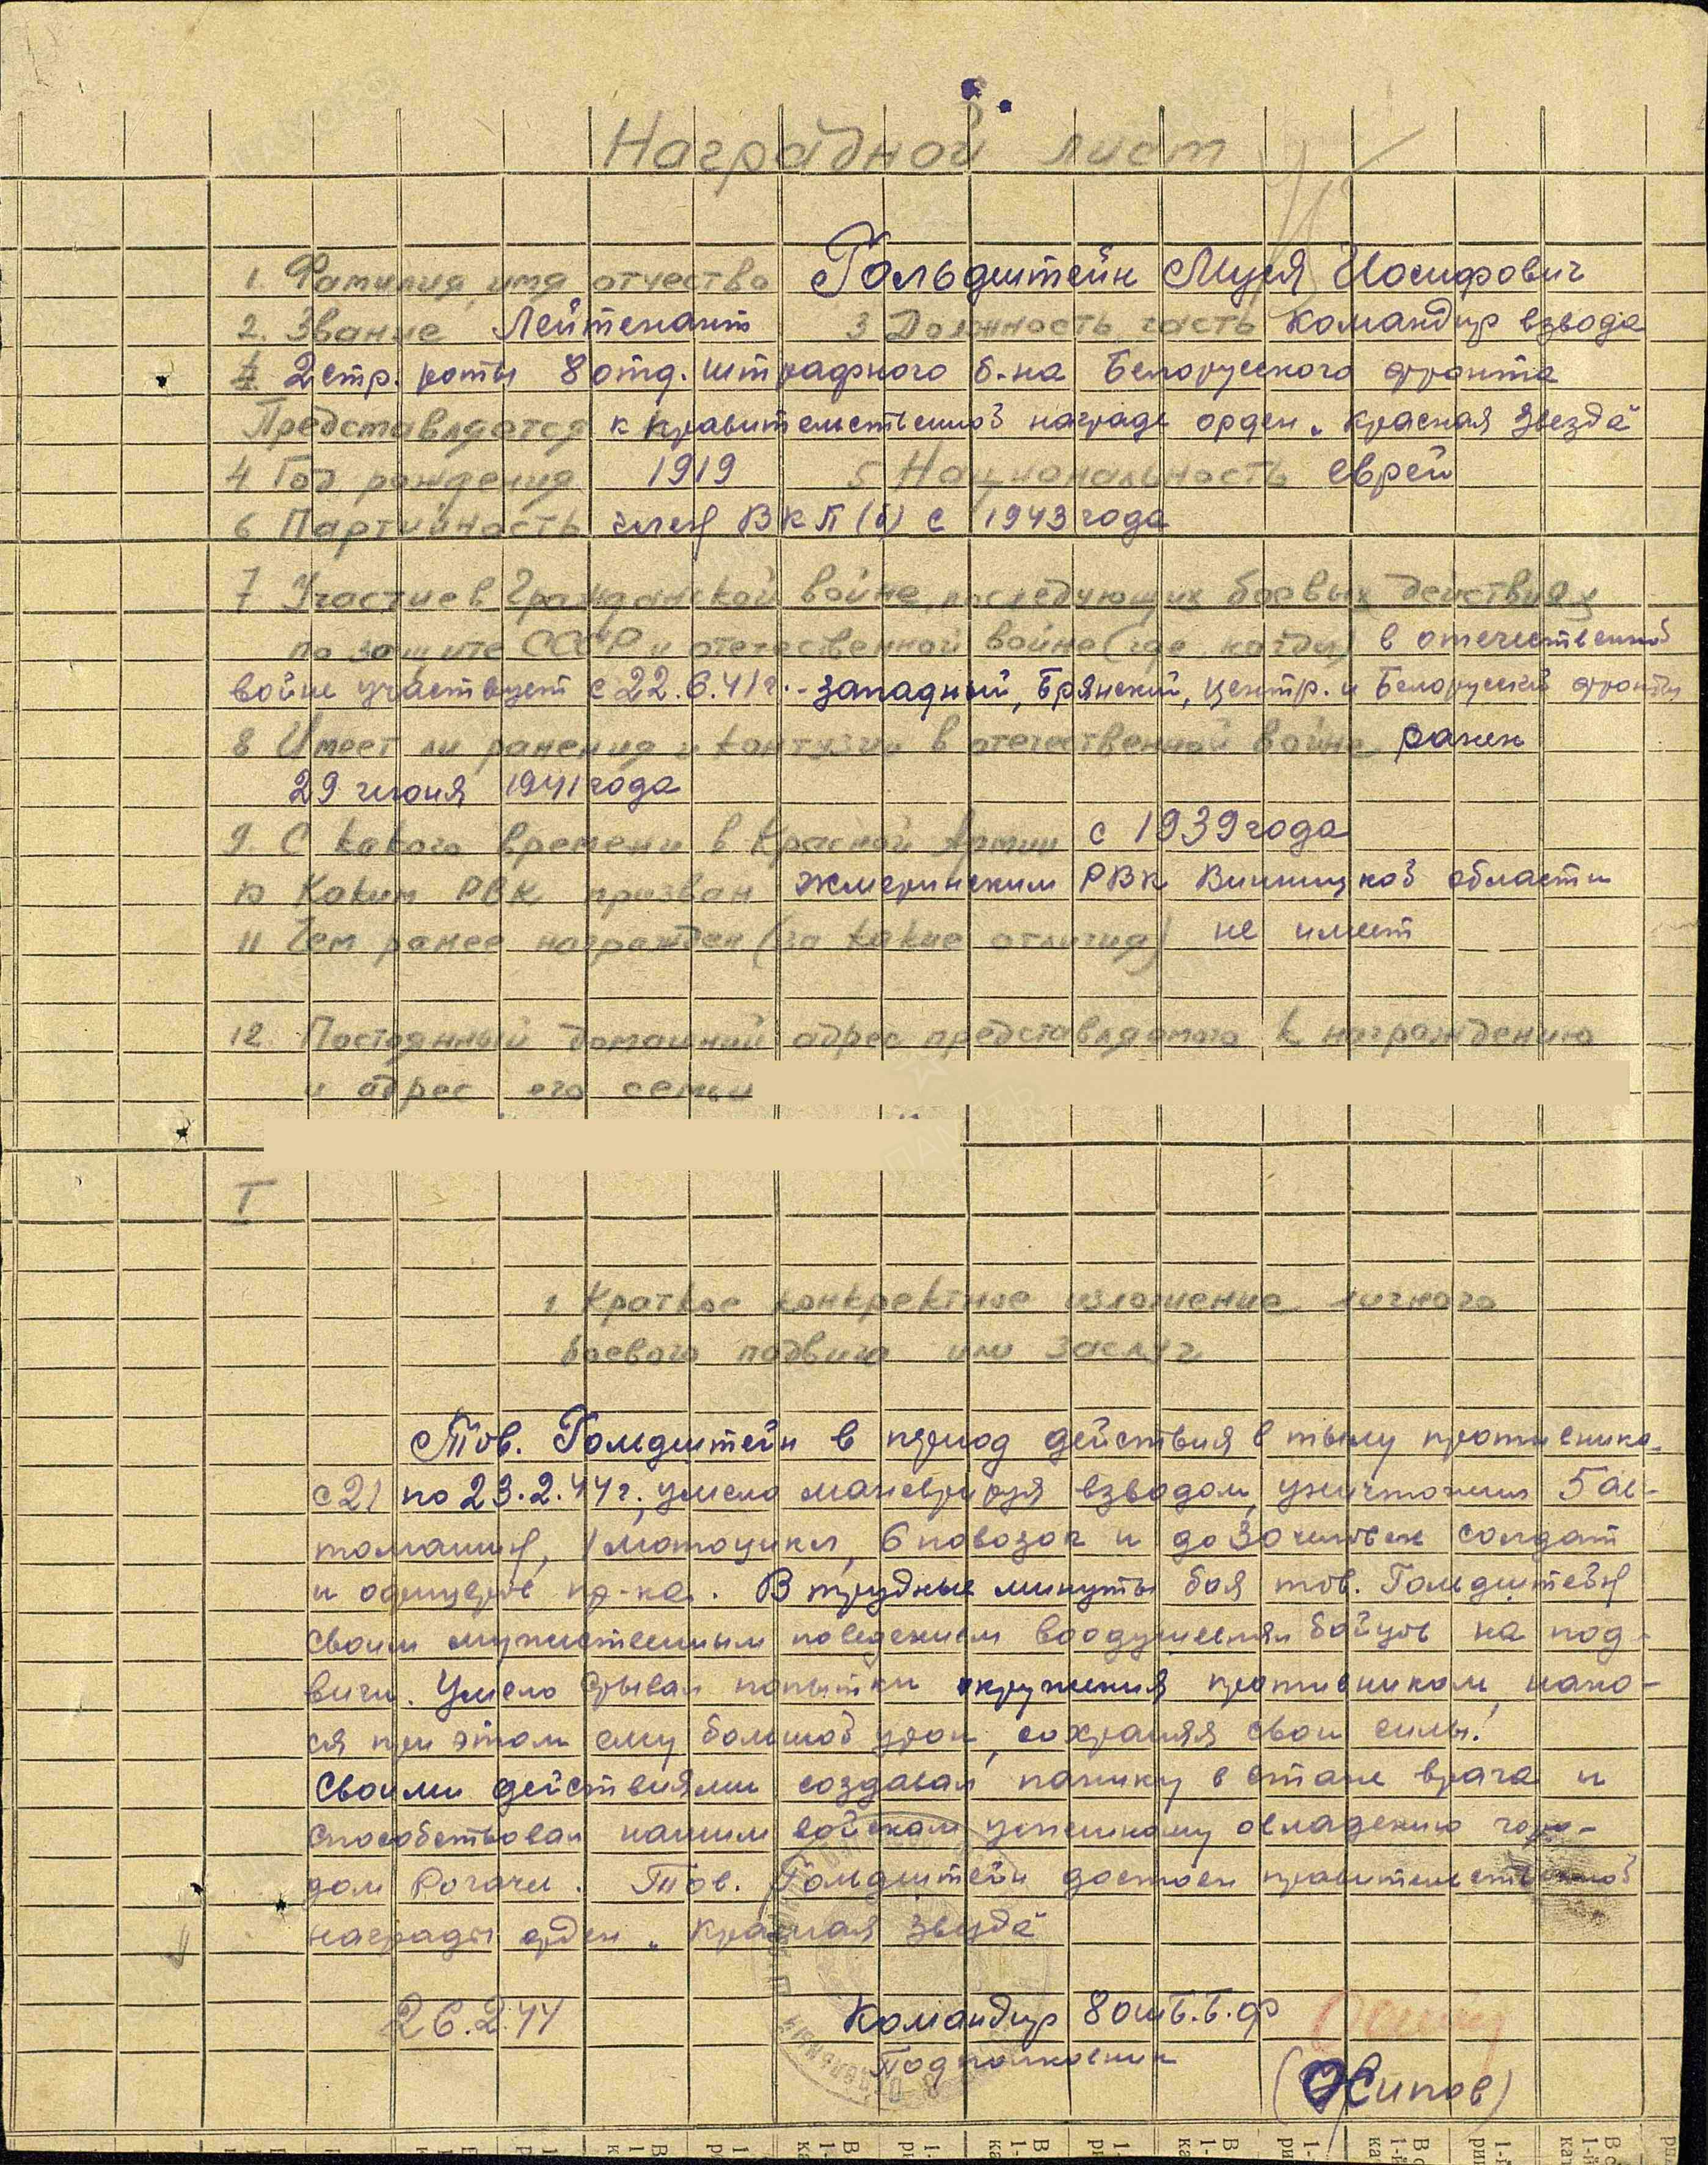 Наградной лист
1. Фамилия, имя отчество Гольдштейн Муля Иосифович
2. Звание Лейтенант 3 Должность, часть командир взвода
2 стр. роты 8 отд. штрафного б-на Белорусского фронта
Представляется к правительственной награде орден „Красная Звезда"
4 Год рождения 1919 5 Национальность еврей
6 Партийность член ВКП(б) с 1943 года
7 Участие в Гражданской войне, последующих боевых действиях
по защите СССР и отечественной войне (где, когда) в отечественной
войне участвует с 22.6.41г. - западный, Брянский, центр. и Белорусский фронты
8 Имеет ли ранения и контузии в отечественной войне ранен
29 июня 1941 года
9. С какого времени в Красной Армии с 1939 года
10 Каким РВК призван Жмеринским РВК Винницкой области
11 Чем ранее награжден (за какие отличия) не имеет
12. Постоянный домашний адрес представляемого к награждению
и адрес его семьи
I
1 Краткое конкретное изложение личного
боевого подвига или заслуг
Тов. Гольдштейн в период действия в тылу противника
с 21 по 23.2.44 г., умело маневрируя взводом, уничтожил 5 ав-
томашин, 1 мотоцикл, 6 повозок и до 30 человек солдат
и офицеров пр-ка. В трудные минуты боя тов. Гольдштейн
своим мужественным поведением воодушевлял бойцов на под-
виги. Умело срывал попытки окружения противником, нано-
ся при этом ему большой урон, сохраняя свои силы.
Своими действиями создавал панику в стане врага и
способствовал нашим войскам успешному овладению горо-
дом Рогачев. Тов. Гольдштейн достоин правительственной
награды орден „Красная Звезда"
26.2.44 Командир 8 ОШБ.Б.Ф
Подполковник
(Осипов)